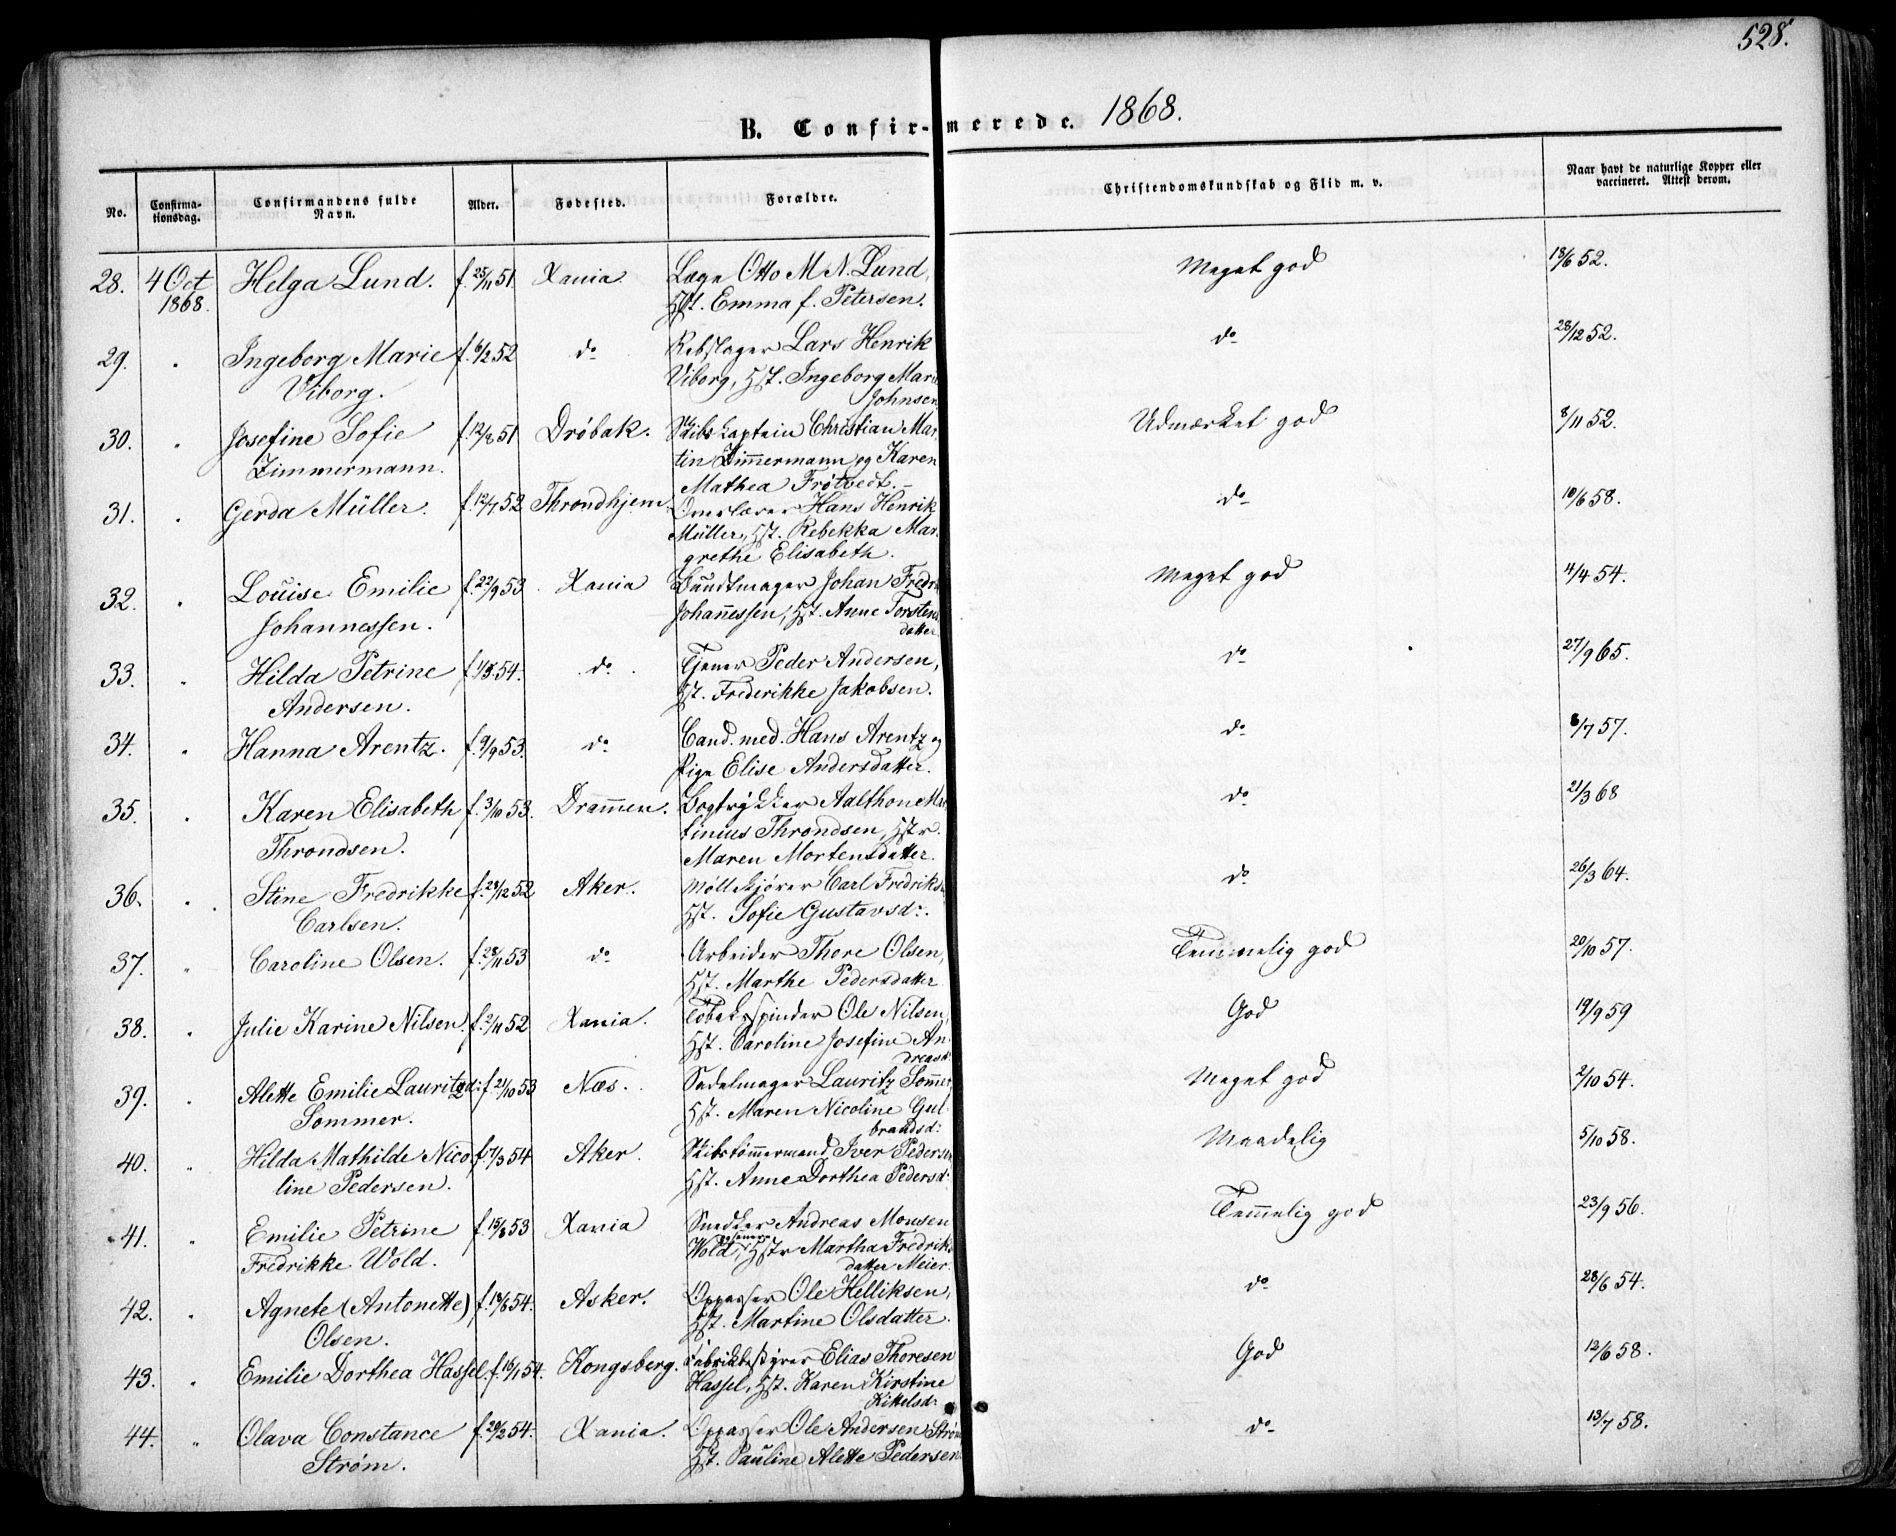 528.
B. Confir-merede. 1868.
No.
Confirma-
tionsdag.
Confirmandens fulde
Navn.
Alder.
Fødested.
Forældre.
Christendomskundskab og Flid m. v.
Naar havt de naturlige Kopper eller
vaccineret. Attest derom.
28. 4 Oct Helga Lund. f. 25/11 51 Xania Læge Otto M N. Lund, Meget god 18/6 52.
1868. Hst. Emma f. Petersen.
29. " Ingeborg Marie f. 6/2 52 do Rebslager Lars Henrik do 28/12 52.
Viborg. Viborg, Hst. Ingeborg Marie
Johnsen
30. " Josefine Sofie f. 12/8 51 Drøbak. Skibskaptein Christian Mar- Udmærket god 8/11 52.
Zimmermann. tin Zimmermann og Karen
Mathea Frøtvedt.
31. " Gerda Müller. f. 12/7 52 Throndhjem. Overlærer Hans Henrik do 10/6 58.
Müller, Hst. Rebekka Mar-
grethe Elisabeth.
32. " Louise Emilie f. 22/9 53 Xania Bundtmager Johan Fredrik Meget god 4/4 54.
Johannessen. Johannessen, Hst. Anne Torstens
datter
33. " Hilda Petrine f. 1/5 54. do. Tjener Peder Andersen, do 27/9 65.
Andersen. Hst. Frederikke Jakobsen.
34. " Hanna Arentz. f. 9/9 53. do Cand. med. Hans Arentz og do 8/7 57.
Pige Elise Andersdatter.
35. " Karen Elisabeth f. 3/10 53. Drammen. Bogtrykker Aalthon Mar- do 21/3 68
Throndsen. tinius Throndsen, Hstr.
Maren Mortensdatter.
36. " Stine Fredrikke f. 28/12 52 Aker. Møllekjører Carl Fredriks. do 26/3 64.
Carlsen. Hst. Sofie Gustavsd:.
37. " Caroline Olsen. f. 28/11 53 do Arbeider Thore Olsen, Temmelig god 20/10 57.
Hst. Marthe Pedersdatter
38. " Julie Karine Nilsen. f. 2/11 52 Xania. Tobaksspinder Ole Nilsen, God 19/9 59
Hst. Caroline Josefine An-
dreasd:
39. " Alette Emilie Lauritzd: f. 21/10 53 Næs. Sadelmager Lauritz Sommer, Meget god 2/10 54.
Sommer. Hst. Maren Nicoline Gul-
brandsd:
40. " Hilda Mathilde Nico f. 7/3 54 Aker. Skibstømmermand Iver Pedersen Maadelig 5/10 58.
line Pedersen. Hst. Anne Dorthea Pedersd:
41. " Emilie Petrine f. 15/8 53 Xania Snedker Andreas Monsen Temmelig god 23/9 56.
Fredrikke Wold. Wold, Hstr Martha Fredriks
datter Meier.
42. " Agnete (Antonette) f. 18/6 54. Asker. Oppasser Ole Helliksen, do 28/6 54.
Olsen. Hst. Martine Olsdatter.
43. " Emilie Dorthea Hassel. f. 16/1 54. Kongsberg. Fabrikbestyrer Elias Thoresen God 12/6 58.
Hassel, Hst. Karen Kirstine
Kittelsd:
44. " Olava Constance f. 20/2 54. Xania. Oppasser Ole Andersen Strøm do 13/7 58.
Strøm. Hst. Pauline Alette Pedersen